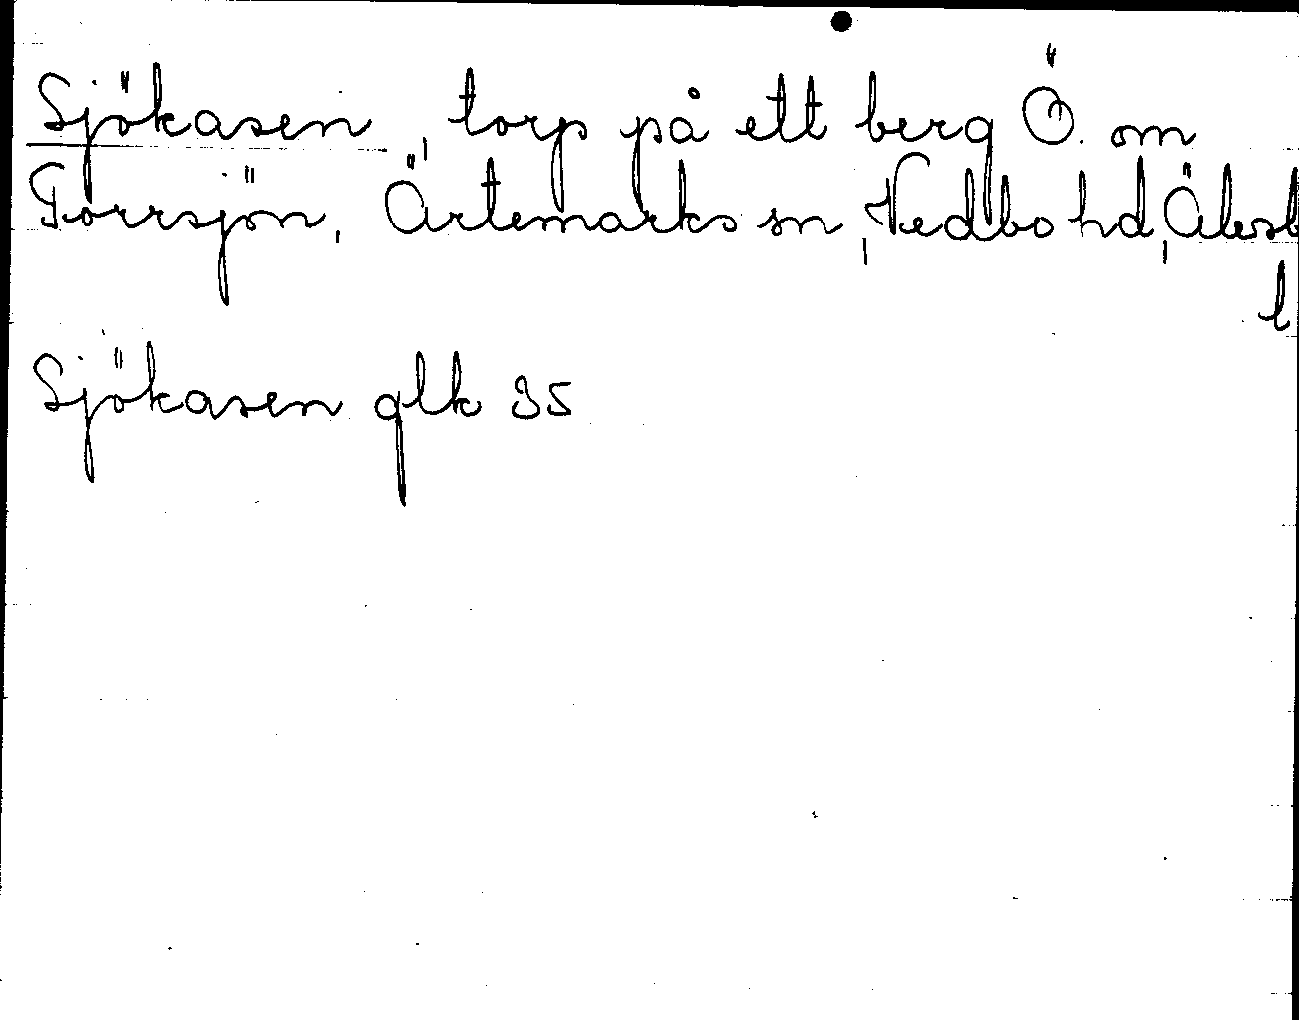 Sjökasen, torp på ett berg Ö. om
Torrsjön, Ärtemarks sn, Vedbo hd, Älvsb
l
Sjökasen glk 35